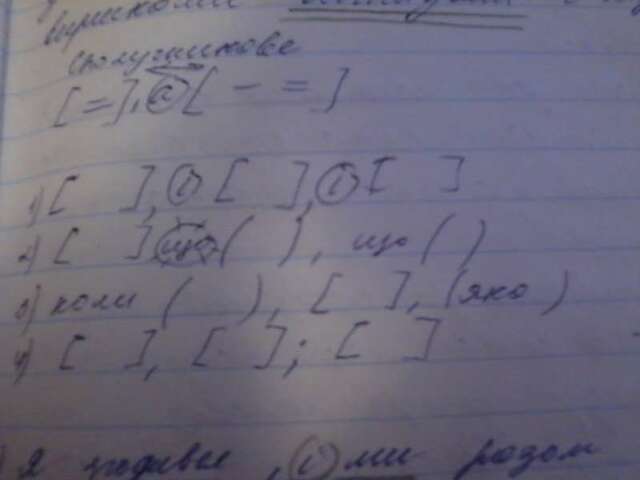 сполучникове
[ = ], а [ – = ]
1) [ ], і [ ], і [ ]
2) [ ] що ( ), що ( )
3) коли ( ), [ ], (яко )
4) [ ], [ ]; [ ]
Я , і ми разом